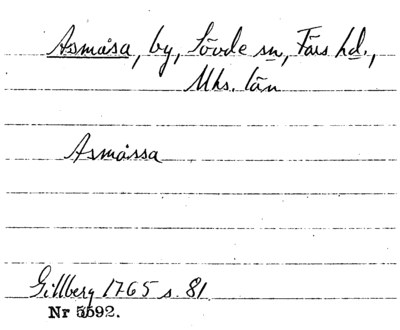 Asmåsa, by, Sövde sn, Färs hd.,
Mhs. län
Asmåssa
Gillberg 1765 s. 81.
Nr 5592.